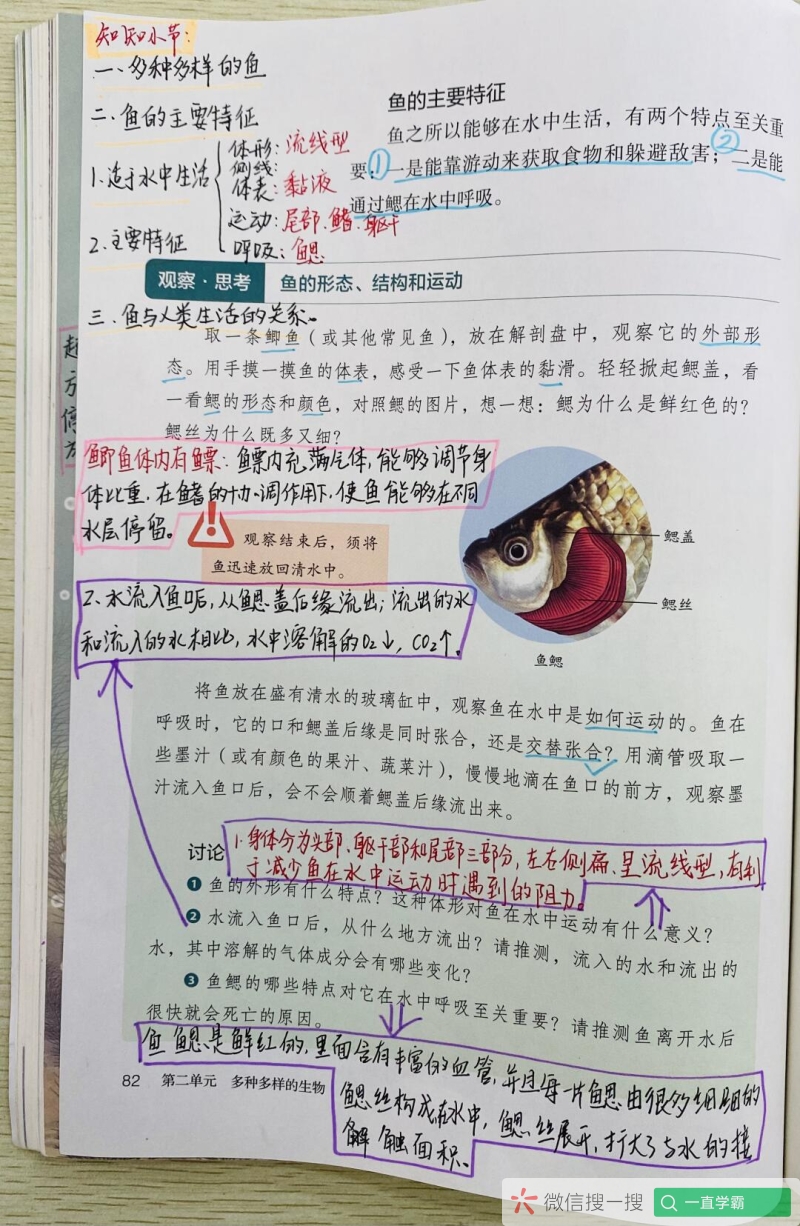 知知小节：
一、多种多样的鱼
二、鱼的主要特征
1.适于水中生活
体形：流线型
侧线：
体表：黏液
运动：尾部、鳍、躯干
呼吸：鳃
2.主要特征
鱼的主要特征
鱼之所以能够在水中生活，有两个特点至关重
要：①一是能靠游动来获取食物和躲避敌害；②二是能
通过鳃在水中呼吸。
观察·思考 鱼的形态、结构和运动
三、鱼与人类生活的关系。
取一条鲫鱼（或其他常见鱼），放在解剖盘中，观察它的外部形
态。用手摸一摸鱼的体表，感受一下鱼体表的黏滑。轻轻掀起鳃盖，看
一看鳃的形态和颜色，对照鳃的图片，想一想：鳃为什么是鲜红色的？
鳃丝为什么既多又细？
鲫鱼体内有鳔：鱼鳔内充满气体，能够调节身
体比重，在鳍的协调作用下，使鱼能够在不同
水层停留。
观察结束后，须将
鱼迅速放回清水中。
鳃盖
鳃丝
鱼鳃
2、水流入鱼口后，从鳃盖后缘流出；流出的水
和流入的水相比，水中溶解的O₂↓，CO₂↑。
将鱼放在盛有清水的玻璃缸中，观察鱼在水中是如何运动的。鱼在
呼吸时，它的口和鳃盖后缘是同时张合，还是交替张合？用滴管吸取一
些墨汁（或有颜色的果汁、蔬菜汁），慢慢地滴在鱼口的前方，观察墨
汁流入鱼口后，会不会顺着鳃盖后缘流出来。
讨论
1.身体分为头部、躯干部和尾部三部分，左右侧扁、呈流线型，有利
于减少鱼在水中运动时遇到的阻力。
❶ 鱼的外形有什么特点？这种体形对鱼在水中运动有什么意义？
❷ 水流入鱼口后，从什么地方流出？请推测，流入的水和流出的
水，其中溶解的气体成分会有哪些变化？
❸ 鱼鳃的哪些特点对它在水中呼吸至关重要？请推测鱼离开水后
很快就会死亡的原因。
鱼鳃是鲜红的，里面含有丰富的血管，并且每一片鱼鳃由很多细细的
鳃丝构成在水中，鳃丝展开，扩大了与水的接
解触面积。
82 第二单元 多种多样的生物
微信搜一搜
一直学霸